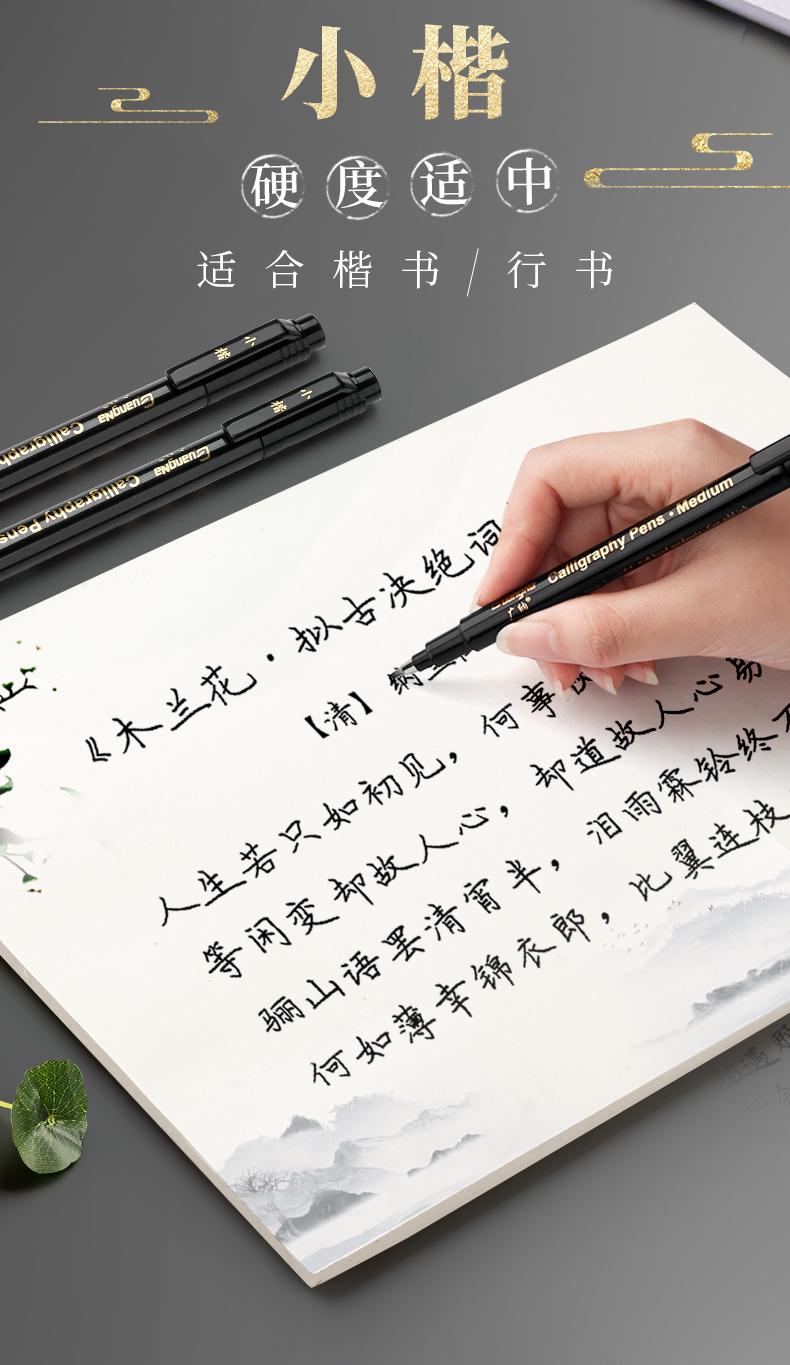 小楷
硬度适中
适合楷书/行书
小楷
GuangNa
Calligraph
小楷
GuangNa
Calligraphy Pens
Calligraphy Pens · Medium
广纳®
《木兰花·拟古决绝词
【清】纳
人生若只如初见，何事
等闲变却故人心，却道故人心易
骊山语罢清宵半，泪雨霖铃终不
何如薄幸锦衣郎，比翼连枝
相遇那